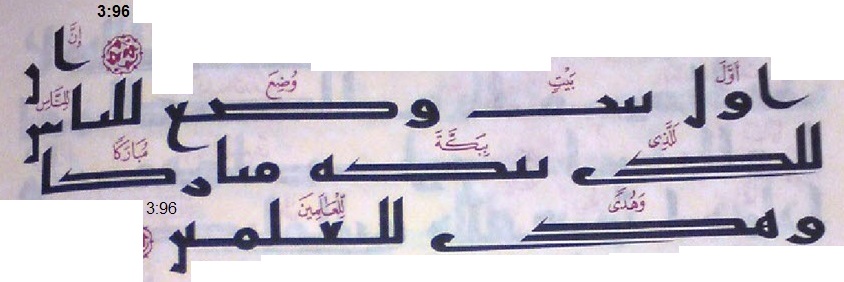 3:96
إِنَّ
ان
أَوَّلَ بَيْتٍ وُضِعَ لِلنَّاسِ
اول بيت وضع للناس
لَلَّذِى بِبَكَّةَ مُبَارَكًا
للذى ببكه مباركا
3:96
وَهُدًى لِّلْعَالَمِينَ
وهدى للعلمين